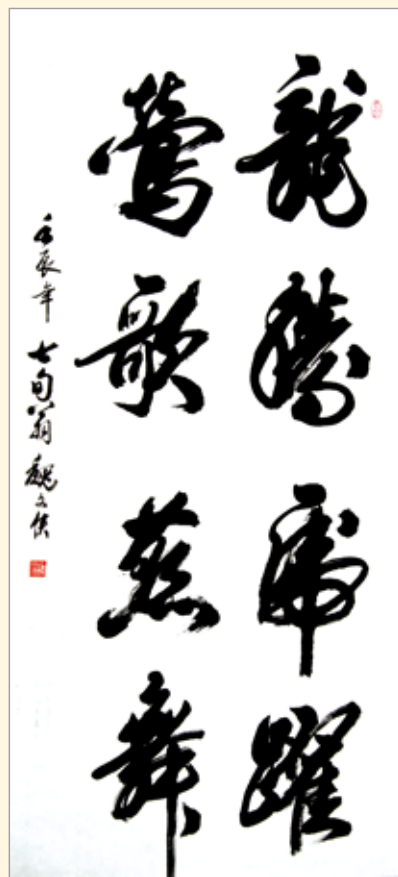 龍騰虎躍
鶯歌燕舞
壬辰年 七旬翁 魏文